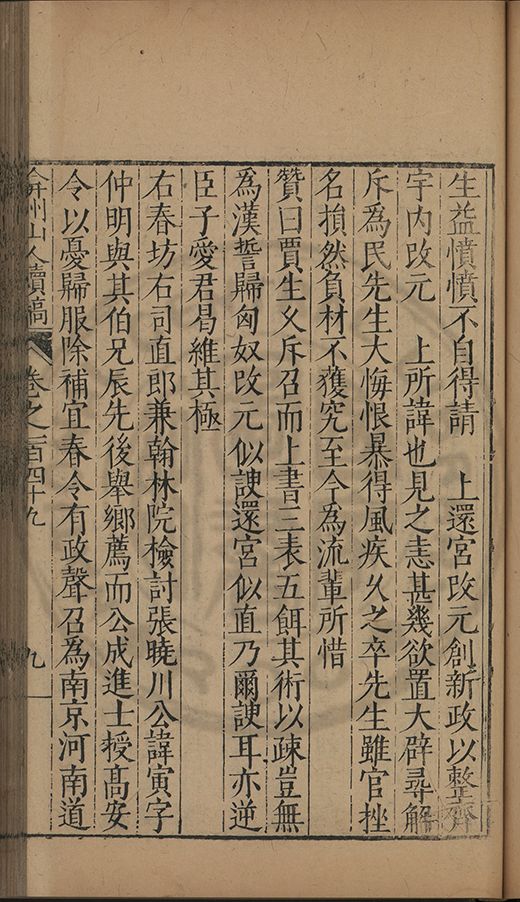 生益憤憤不自得請　上還宮改元創新政以整齊
宇内改元　上所諱也見之恚甚幾欲置大辟尋解
斥為民先生大悔恨暴得風疾久之卒先生雖官挫
名損然負材不獲究至今為流輩所惜
贊曰賈生乂斥召而上書三表五餌其術以疎豈無
為漢誓歸匈奴改元似諛還宮似直乃爾諛耳亦逆
臣子愛君曷維其極
右春坊右司直郎兼翰林院檢討張曉川公諱寅字
仲明與其伯兄辰先後舉鄉薦而公成進士授髙安
令以憂歸服除補宜春令有政聲召為南京河南道
弇州山人續稿　卷之一百四十九　九